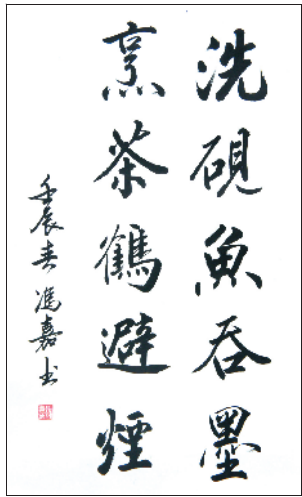 洗硯魚吞墨
烹茶鶴避煙
壬辰春馮嘉书